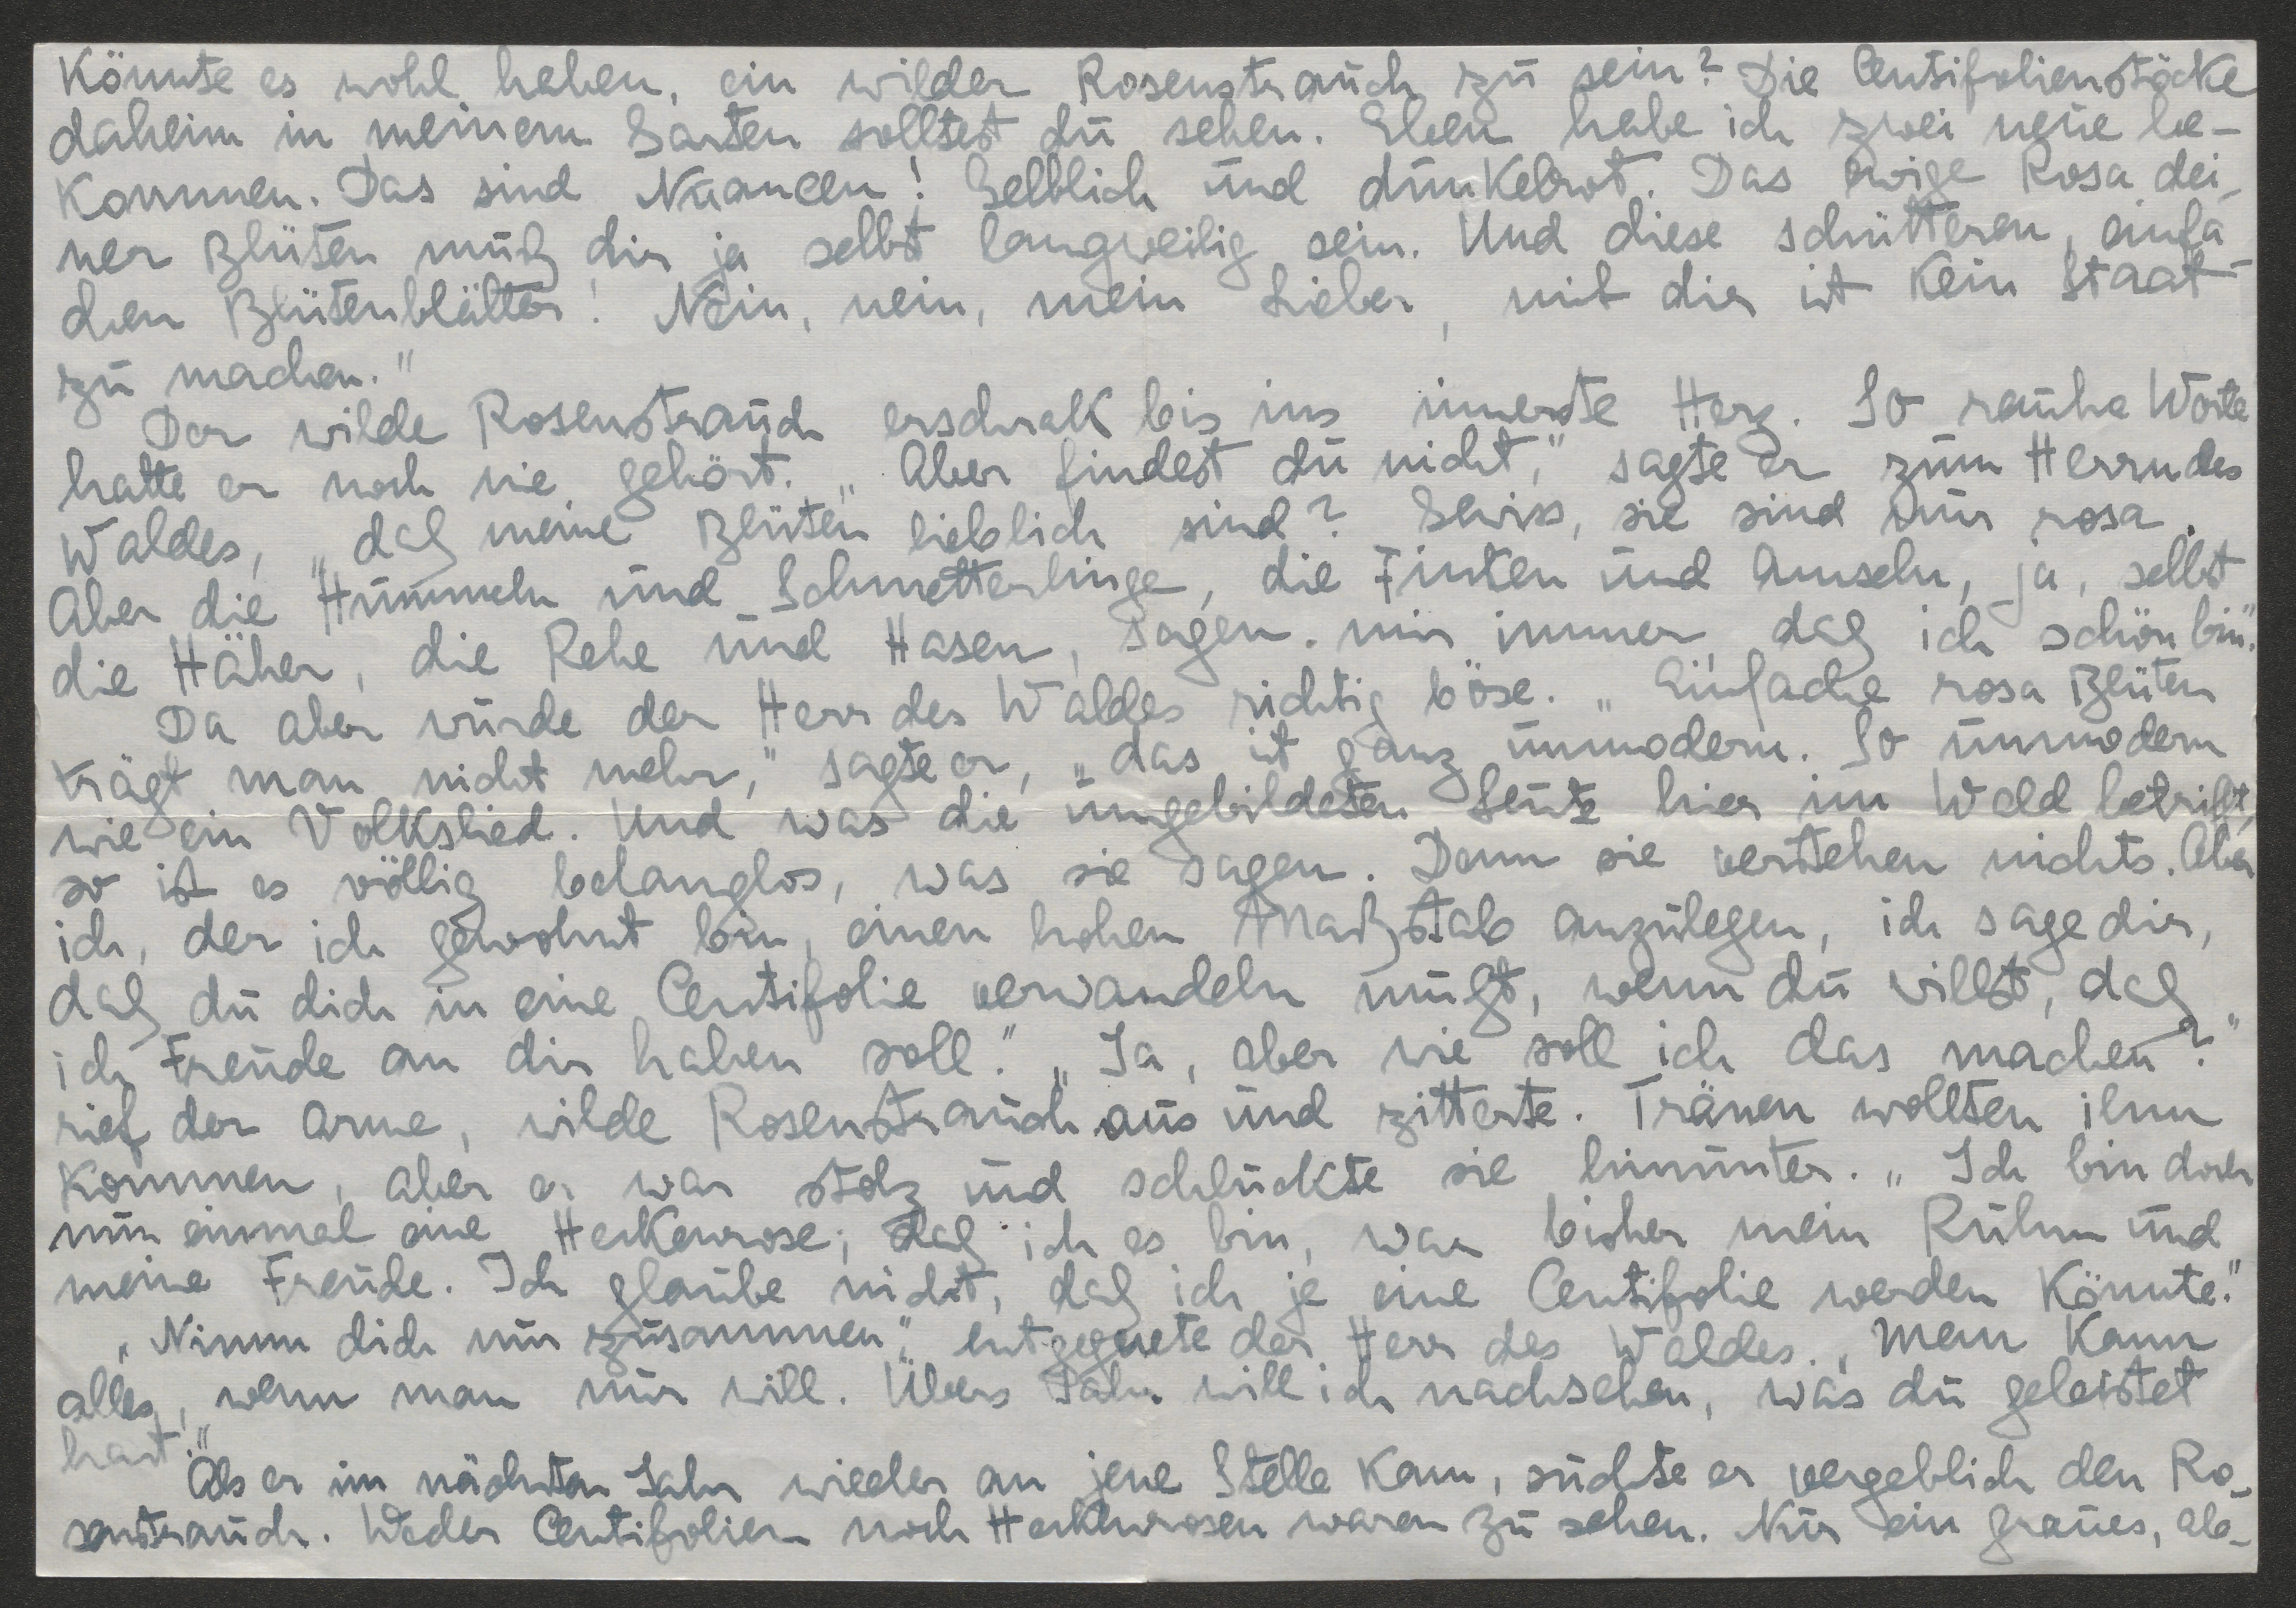 Könnte es wohl haben, ein wilder Rosenstrauch zu sein? Die Centifolienstöcke
daheim in meinem Garten solltest du sehen. Eben habe ich zwei neue be-
kommen. Das sind Nuancen! Gelblich und dunkelrot. Das ewige Rosa dei-
ner Blüten muß dir ja selbst langweilig sein. Und diese schütteren, einfa-
chen Blütenblätter! Nein, nein, mein Lieber, mit dir ist kein Staat
zu machen."
Der wilde Rosenstrauch erschrak bis ins innerste Herz. So rauhe Worte
hatte er noch nie gehört. „Aber findest du nicht," sagte er zum Herrn des
Waldes, „daß meine Blüten lieblich sind? Gewiss, sie sind nur rosa.
Aber die Hummeln und Schmetterlinge, die Finken und Amseln, ja, selbst
die Häher, die Rehe und Hasen, sagen mir immer, daß ich schön bin."
Da aber wurde der Herr des Waldes richtig böse. „Einfache rosa Blüten
trägt man nicht mehr," sagte er, „das ist ganz unmodern. So unmodern
wie ein Volkslied. Und was die ungebildeten Leute hier im Wald betrifft,
so ist es völlig belanglos, was sie sagen. Denn sie verstehen nichts. Aber
ich, der ich gewohnt bin, einen hohen Maßstab anzulegen, ich sage dir,
daß du dich in eine Centifolie verwandeln mußt, wenn du willst, daß
ich Freude an dir haben soll." „Ja, aber wie soll ich das machen?"
rief der arme, wilde Rosenstrauch aus und zitterte. Tränen wollten ihm
kommen, aber er war stolz und schluckte sie hinunter. „Ich bin doch
nun einmal eine Heckenrose; daß ich es bin, war bisher mein Ruhm und
meine Freude. Ich glaube nicht, daß ich je eine Centifolie werden könnte."
„Nimm dich nur zusammen," entgegnete der Herr des Waldes. „Man kann
alles, wenn man nur will. Übers Jahr will ich nachsehen, was du geleistet
hast."
Als er im nächsten Jahr wieder an jene Stelle kam, suchte er vergeblich den Ro-
senstrauch. Weder Centifolien noch Heckenrosen waren zu sehen. Nur ein graues, ab-